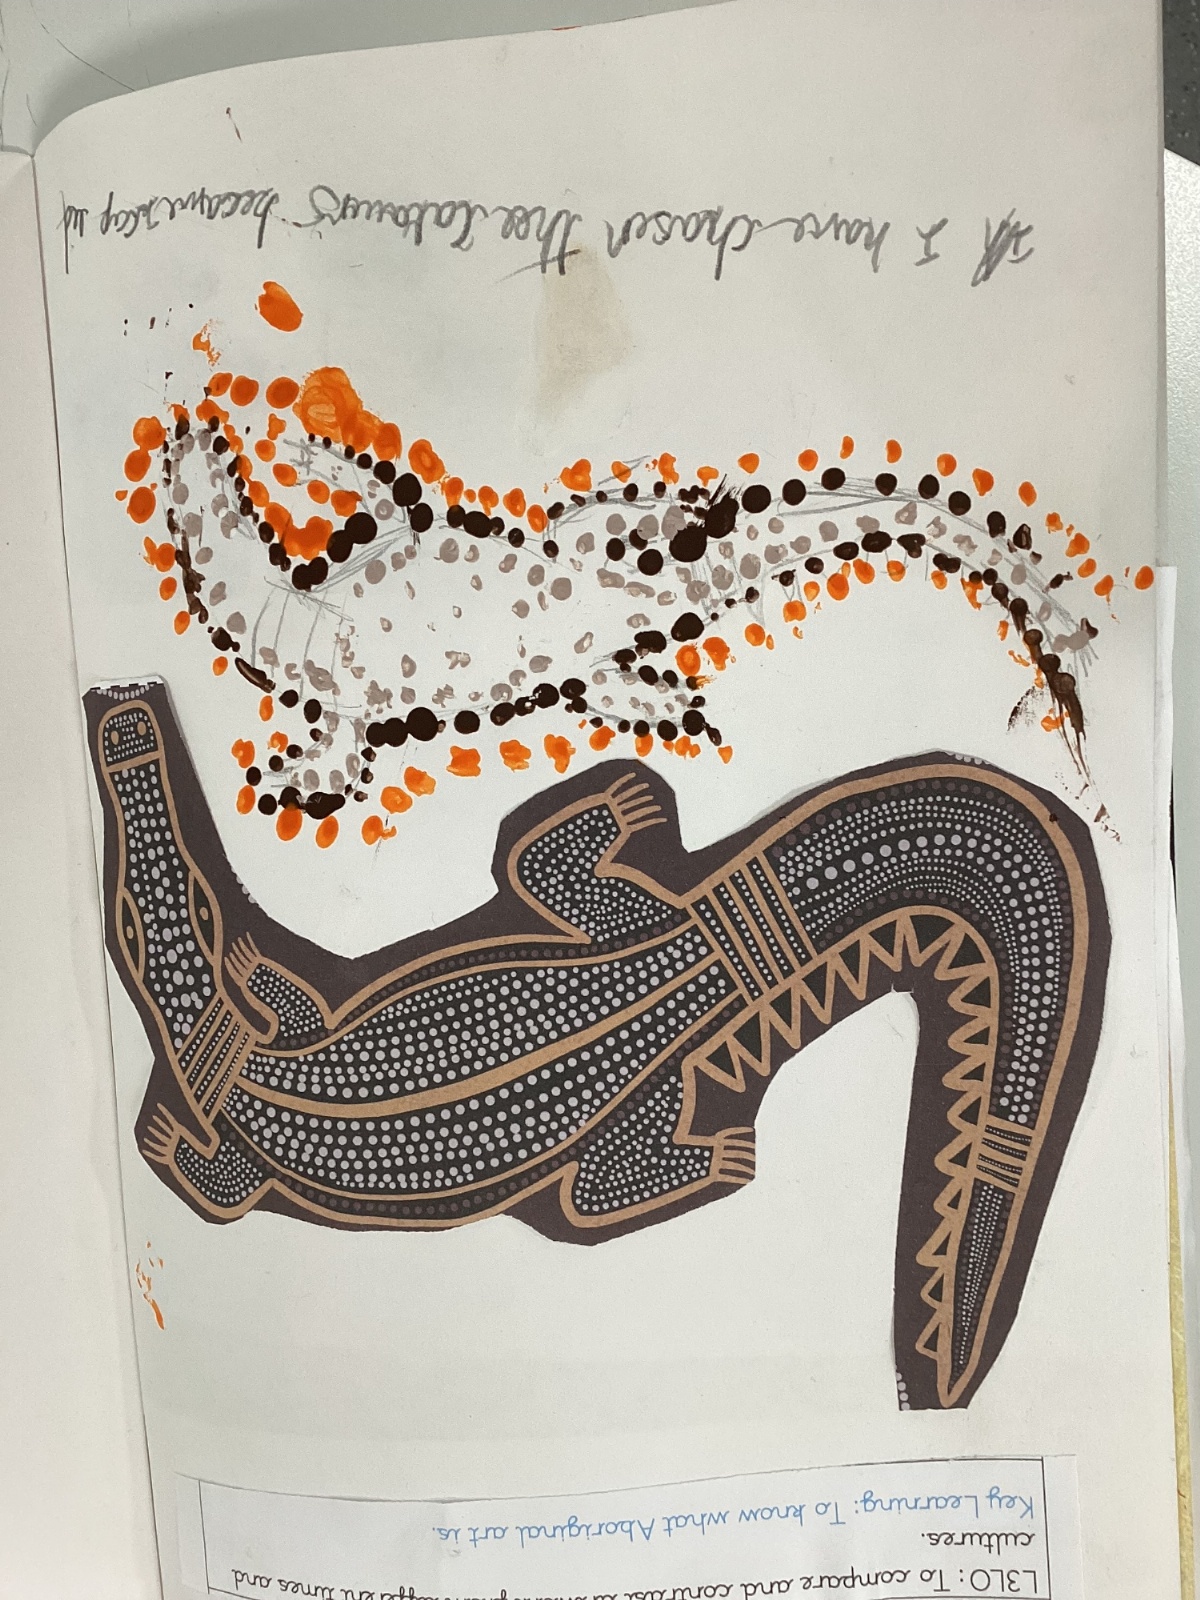 L3LO: To compare and contrast different times and
cultures.
Key Learning: To know what Aboriginal art is.
I have chosen thee because